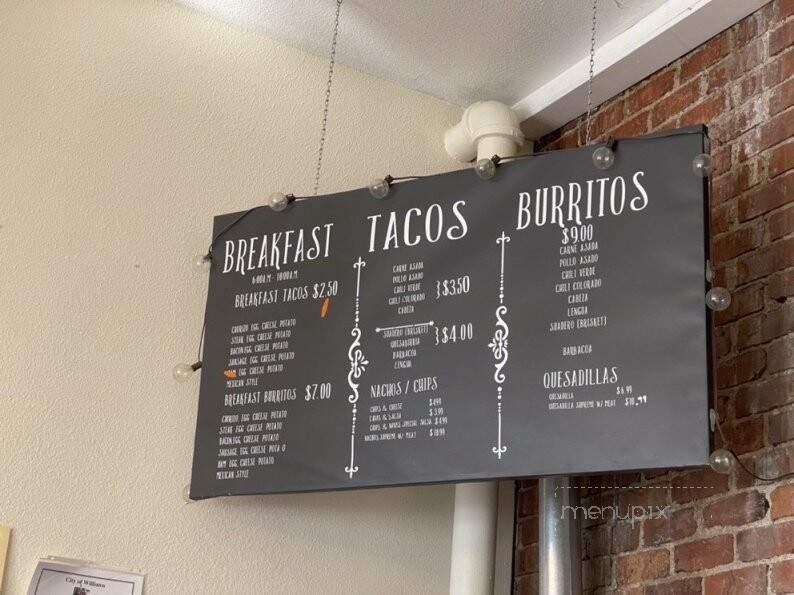 BREAKFAST
6:00A.M - 10:00A.M
BREAKFAST TACOS $2.50
CHORIZO EGG CHEESE POTATO
STEAK EGG CHEESE POTATO
BACON,EGG CHEESE POTATO
SAUSAGE EGG CHEESE POTATO
EGG CHEESE POTATO
MEXICAN STYLE
BREAKFAST BURRITOS $7.00
CHORIZO EGG CHEESE POTATO
STEAK EGG CHEESE POTATO
BACON,EGG CHEESE POTATO
SAUSAGE EGG CHEESE POTA O
HAM EGG CHEESE POTATO
MEXICAN STYLE
TACOS
CARNE ASADA
POLLO ASADO
CHILI VERDE
CHILI COLORADO
CABEZA
}$3.50
SUADERO (BRISKET)
QUESABIRRIA
BARBACOA
LENGUA
}$4.00
NACHOS / CHIPS
CHIPS & CHEESE $4.99
CHIPS & SALSA $3.99
CHIPS & HOUSE SPECIAL SALSA $4.99
NACHOS SUPREME W/ MEAT $10.99
BURRITOS
$9.00
CARNE ASADA
POLLO ASADO
CHILI VERDE
CHILI COLORADO
CABEZA
LENGUA
SUADERO (BRISKET)
BARBACOA
QUESADILLAS
QUESADILLA $6.99
QUESADILLA SUPREME W/ MEAT $10.99
City of Williams
menupix